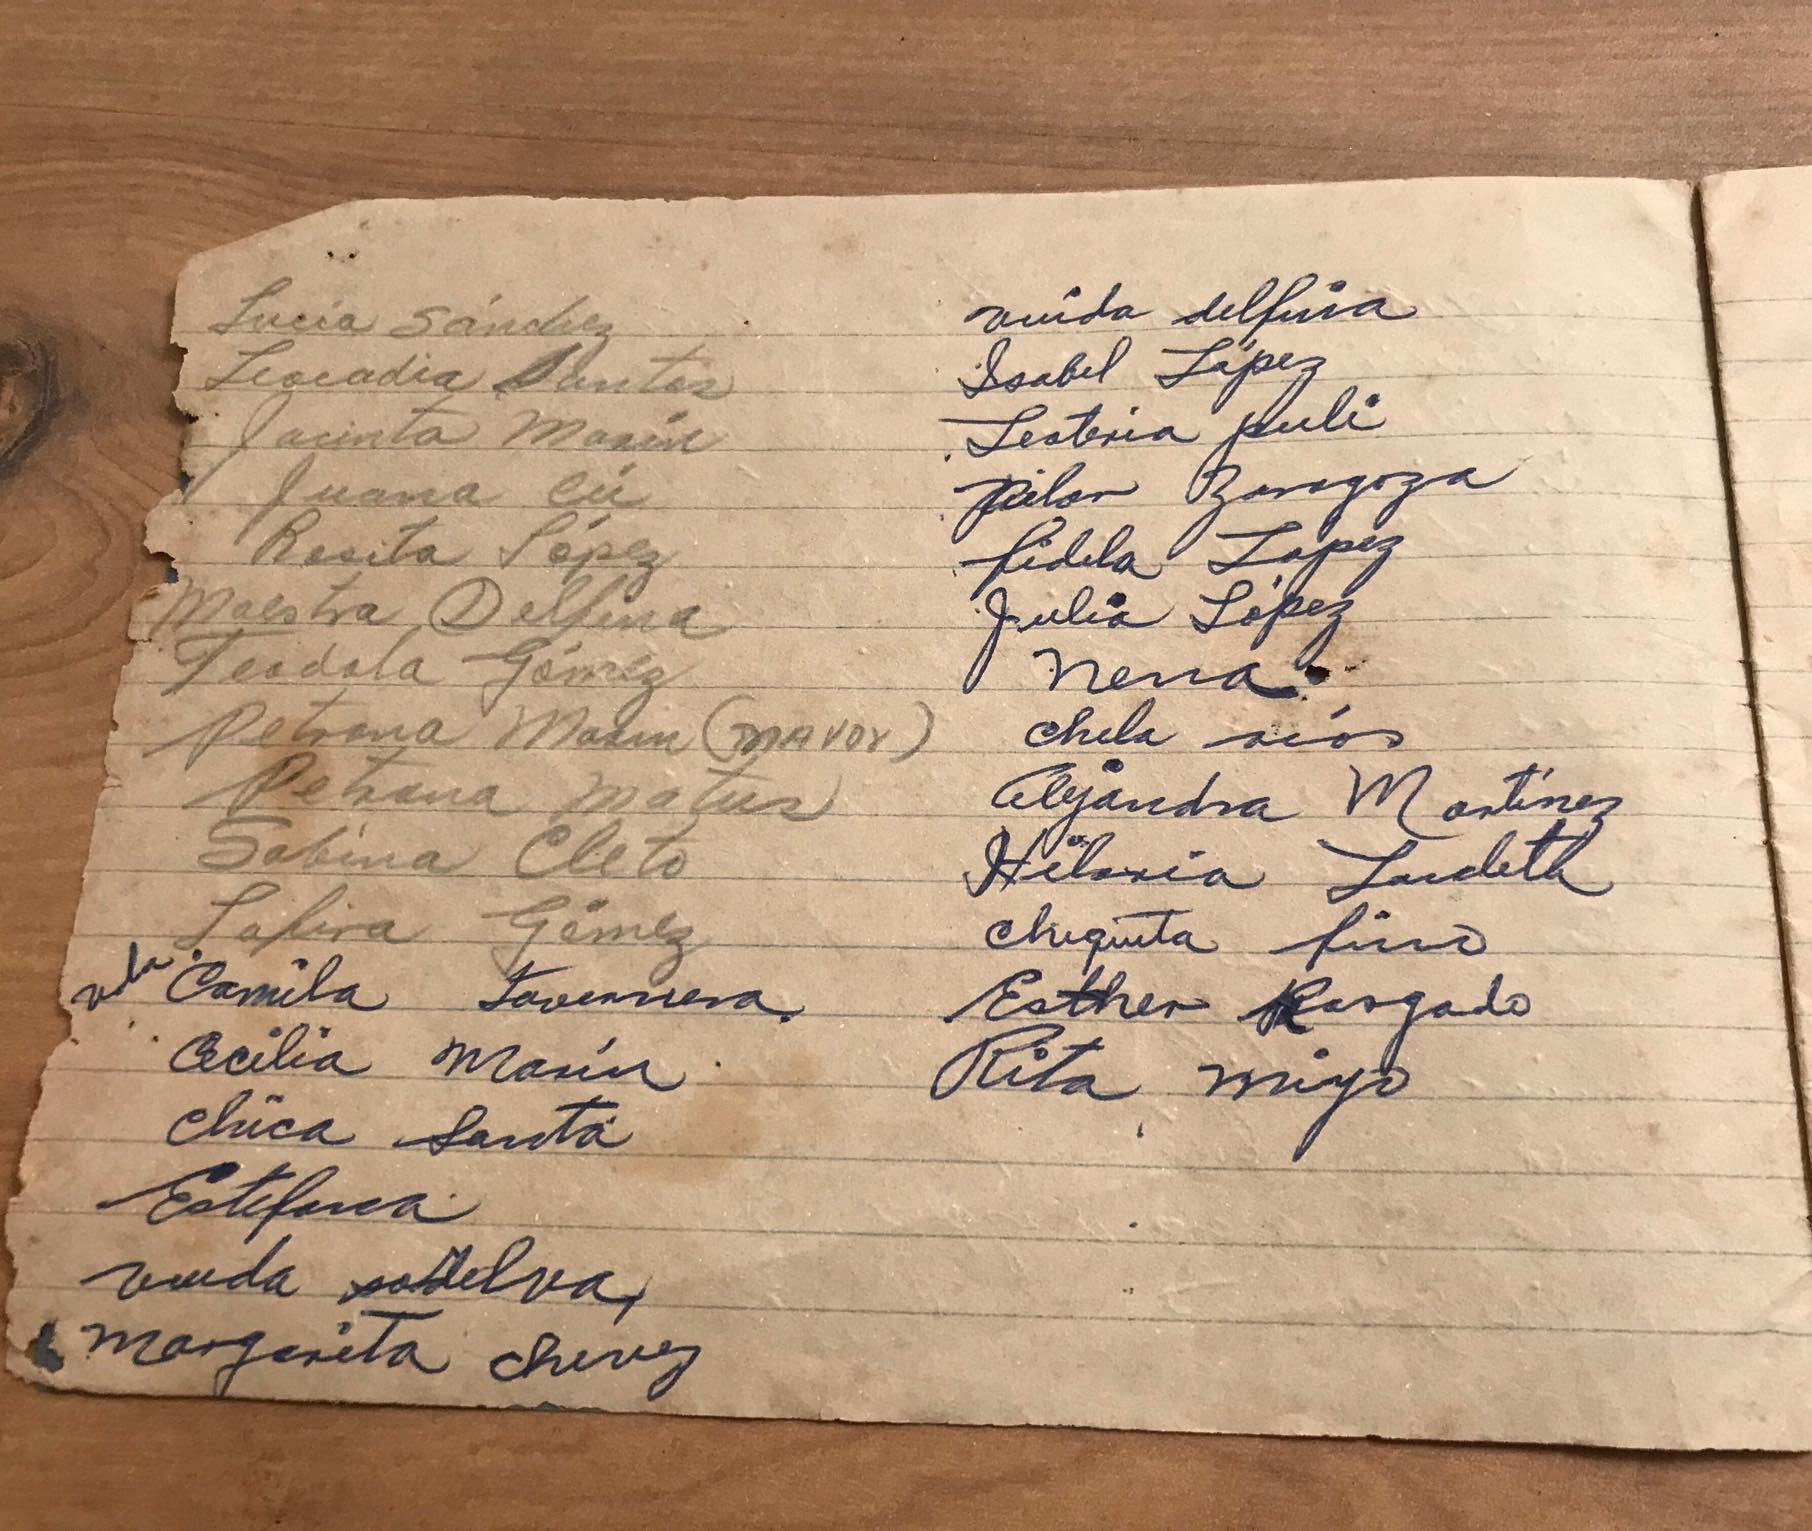 Lucia Sánchez
Leocadia Santos
Jacinta Marín
Juana Cú
Rosita López
Maestra Delfina
Teodola Gómez
Petrona Marin (MAYOR)
Petrona Matus
Sabina Cleto
Safira Gómez
vda. Camila Tavernera.
Cecilia Marín
Chica Santa
Estefana
viuda
Margarita
viuda delfina
Isabel López
puli
Pilar Zaragoza
fidela Lopez
Julia López
Nena.
chela ríos
Alejandra Martínez
Hilaria
chiquita fino
Esther Rasgado
Rita miyo